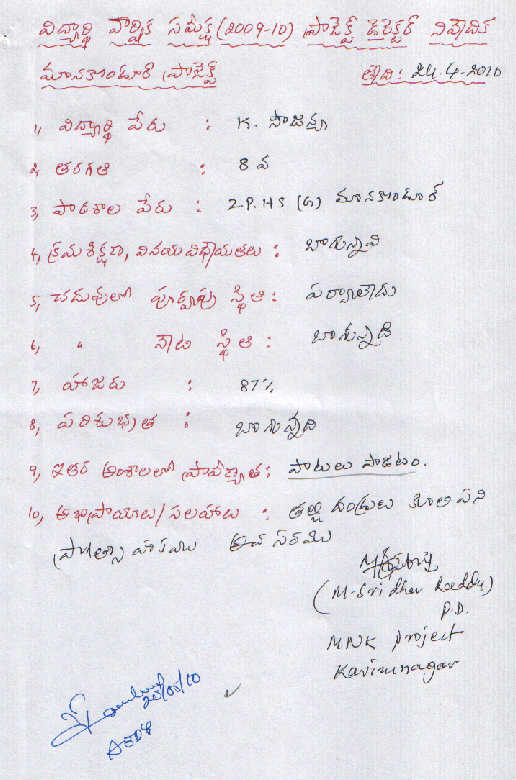 విద్యార్థి వార్షిక సమీక్ష (2009-10) ప్రాజెక్ట్ డైరెక్టర్ నివేదిక
మానకొండూర్ ప్రాజెక్ట్ తేది: 24.4.2010
1, విద్యార్థి పేరు : K. సాజన్యా
2, తరగతి : 8 వ
3, పాఠశాల పేరు : Z.P.HS (G) మానకొండూర్
4, క్రమశిక్షణ, వినయవిధేయతలు : బాగున్నవి
5, చదువులో పూర్వపు స్థితి : పర్వాలేదు
6, " నేటి స్థితి : బాగున్నది
7, హాజరు : 87%
8, పరిశుభ్రత : బాగున్నది
9, ఇతర అంశాలలో ప్రావీణ్యత : పాటలు పాడటం.
10, అభిప్రాయాలు/సలహాలు : తల్లి దండ్రులు కూలి పని
ప్రోత్సాహకాలు అవసరము
(M. Sridher Reddy)
P.D.
MNK project
Karimnagar